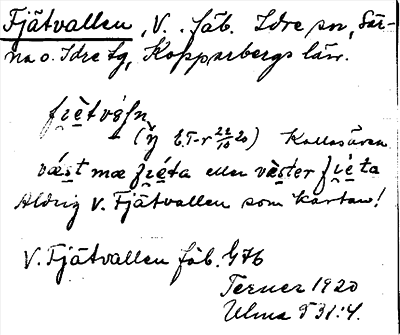 Fjätvallen, V. fäb. Idre sn, Sär-
na o. Idre tg, Kopparbergs län.
fjè̱tvá̱ɫn
(ŋ E.T-r 22/10 20) Kallas även
væ̱st mæ fjé̱ta eller vè̱ster fjé̱ta
Aldrig V. Fjätvallen som kartan!
V. Fjätvallen fäb. G76
Terner 1920
Ulma 531:4.